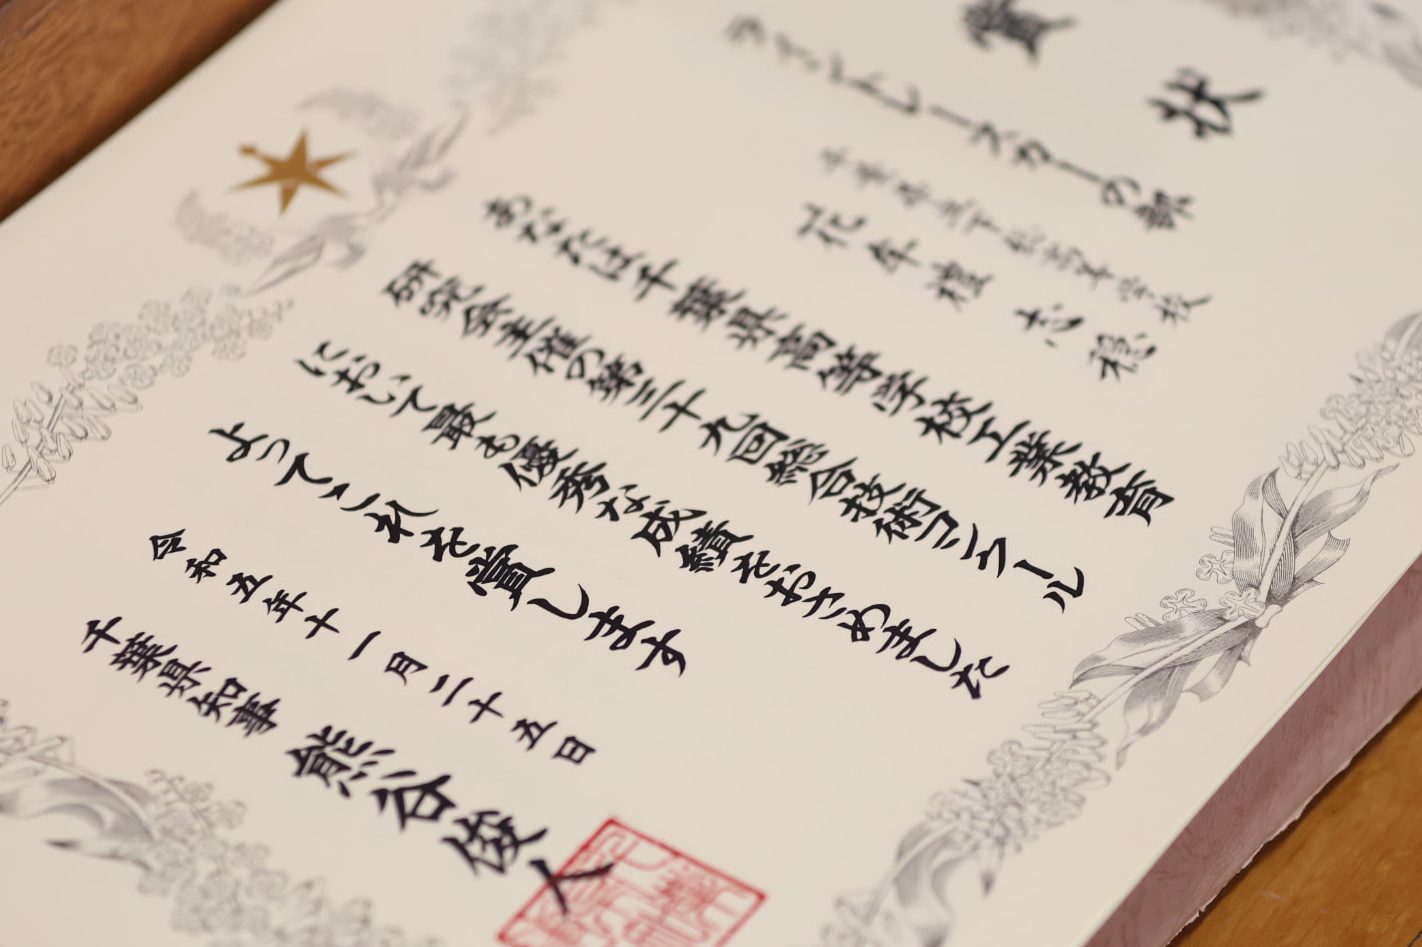 賞状
ライントレースカーの部
千葉県立下総高等学校
花牟禮 志穏
あなたは千葉県高等学校工業教育
研究会主催の第三十九回総合技術コンクール
において最も優秀な成績をおさめました
よってこれを賞します
令和五年十一月二十五日
千葉県知事 熊谷俊人